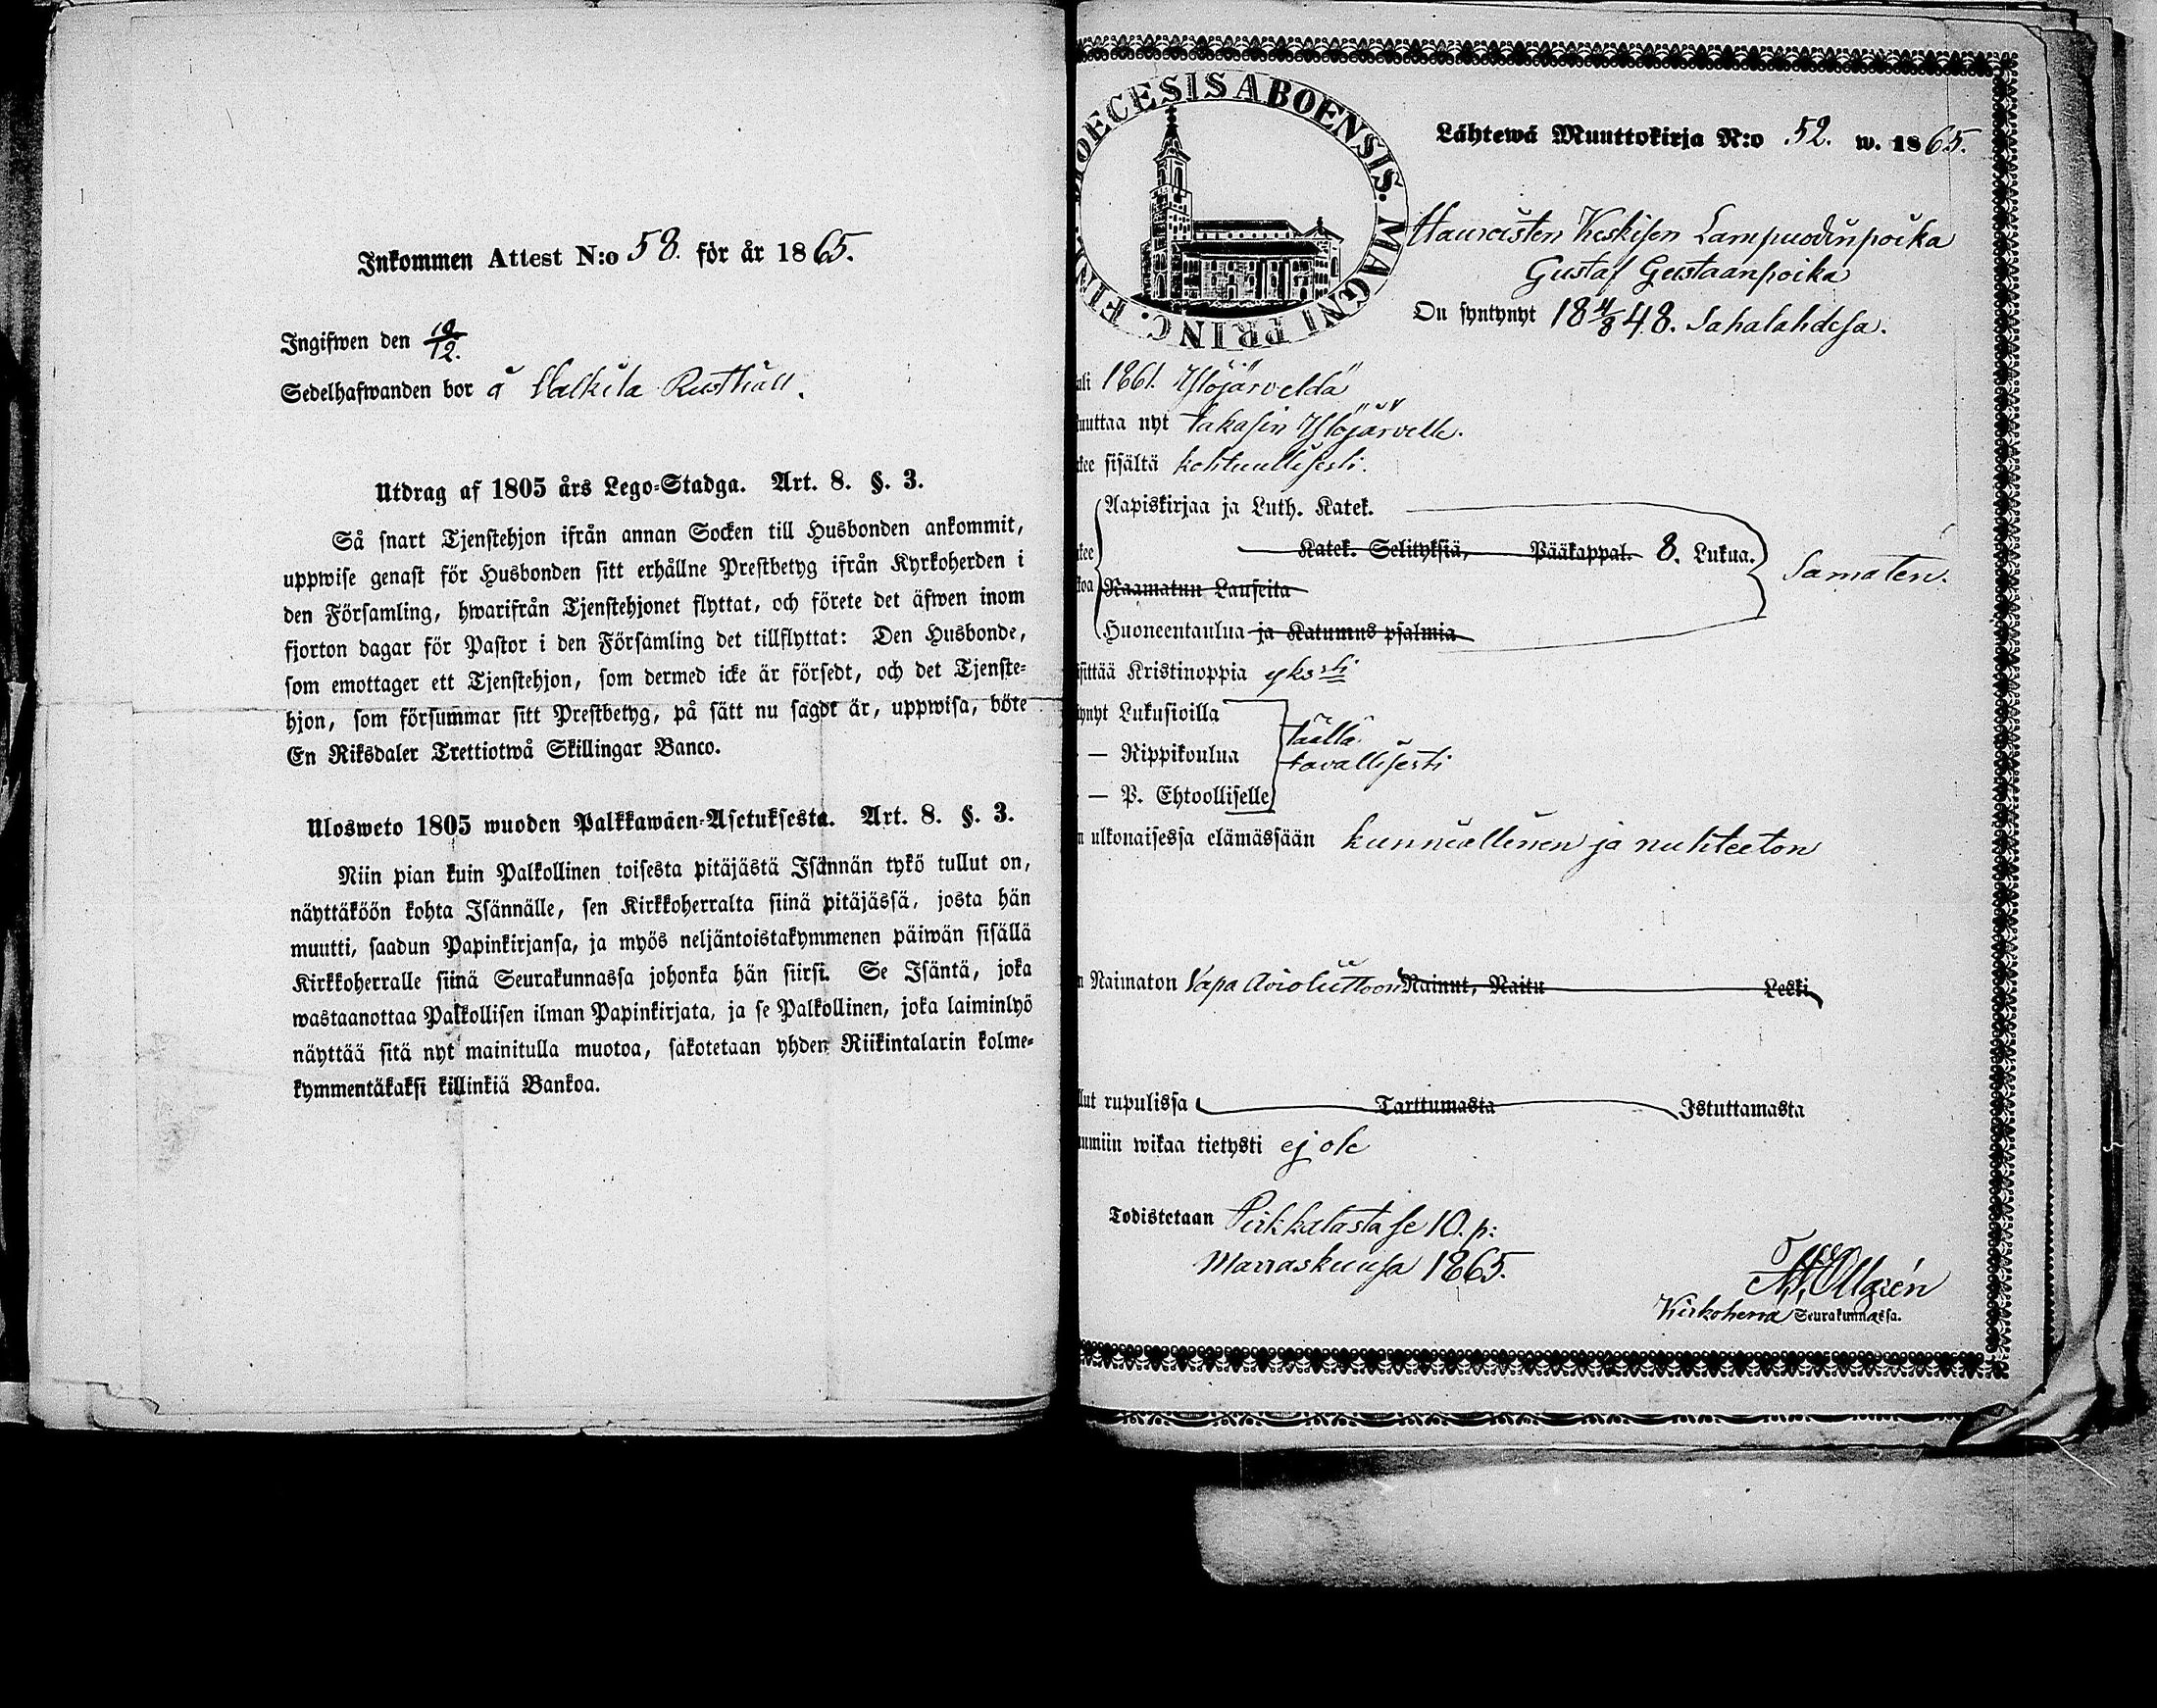 Inkommen Attest N:o 58. för år 1865.
Ingifwen den 19/12.
Sedelhafwanden bor å Valkila Rusthåll.
Utdrag af 1805 års Lego-Stadga. Art. 8. §. 3.
Så snart Tjenstehjon ifrån annan Socken till Husbonden ankommit,
uppwise genast för Husbonden sitt erhållne Prestbetyg ifrån Kyrkoherden i
den Församling, hwarifrån Tjenstehjonet flyttat, och förete det äfwen inom
fjorton dagar för Pastor i den Församling det tillflyttat: Den Husbonde,
som emottager ett Tjenstehjon, som dermed icke är försedt, och det Tjenste-
hjon, som försummar sitt Prestbetyg, på sätt nu sagdt är, uppwisa, böte
En Riksdaler Trettiotwå Skillingar Banco.
Ulosweto 1805 wuoden Palkkawäen-Asetuksesta. Art. 8. §. 3.
Niin pian kuin Palkollinen toisesta pitäjästä Isännän tykö tullut on,
näyttäköön kohta Isännälle, sen Kirkkoherralta siinä pitäjässä, josta hän
muutti, saadun Papinkirjansa, ja myös neljäntoistakymmenen päiwän sisällä
Kirkkoherralle siinä Seurakunnassa johonka hän siirsi. Se Isäntä, joka
wastaanottaa Palkollisen ilman Papinkirjata, ja se Palkollinen, joka laiminlyö
näyttää sitä nyt mainitulla muotoa, sakotetaan yhden Riikintalarin kolme-
kymmentäkaksi killinkiä Bankoa.
DIOECESIS ABOENSIS. MAGNI PRINC. FIN
Lähtewä Muuttokirja N:o 52. w. 1865.
Keskisen Lampuodinpoika
Gustaf Gustaanpoika
On syntynyt 18 4/8 48. Sahalahdesa.
uli 1861. Ylöjärveldä
uuttaa nyt takasin Ylöjärvelle.
kee sisältä kohtuullisesti.
Aapiskirjaa ja Luth. Katek.
Katek. Selityksiä, Pääkappal. 8. Lukua.
Samaten.
Raamatun Lauseita
Huoneentaulua ja Katumus psalmia
sittää Kristinoppia yksti
ynyt Lukusioilla
täällä
— Rippikoulua
tavallisesti
— P. Ehtoolliselle
n ulkonaisessa elämässään kunniallinen ja nuhteeton
n Naimaton Vapa Avioliittoon Nainut, Naitu Leski
lut rupulissa Tarttumasta Istuttamasta
umiin wikaa tietysti ej ole
Todistetaan Pirkkalasta se 10. p:
Marraskuusa 1865.
Kirkoherra Seurakunnassa.